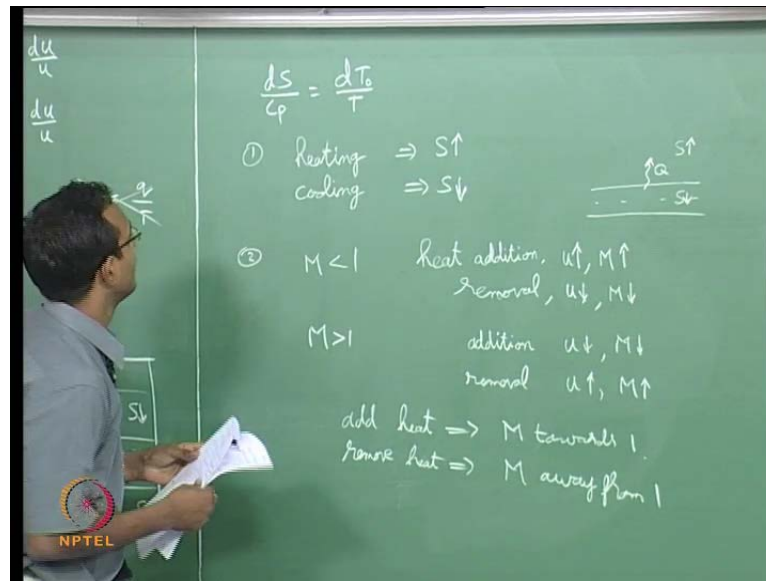 du
u
du
u
q
S↓
dS/Cp = dT₀/T
① heating ⇒ S↑
cooling ⇒ S↓
S↑
↑Q
S↓
② M < 1 heat addition, u↑, M↑
removal, u↓, M↓
M > 1 addition u↓, M↓
removal u↑, M↑
add heat ⇒ M towards 1.
remove heat ⇒ M away from 1
NPTEL